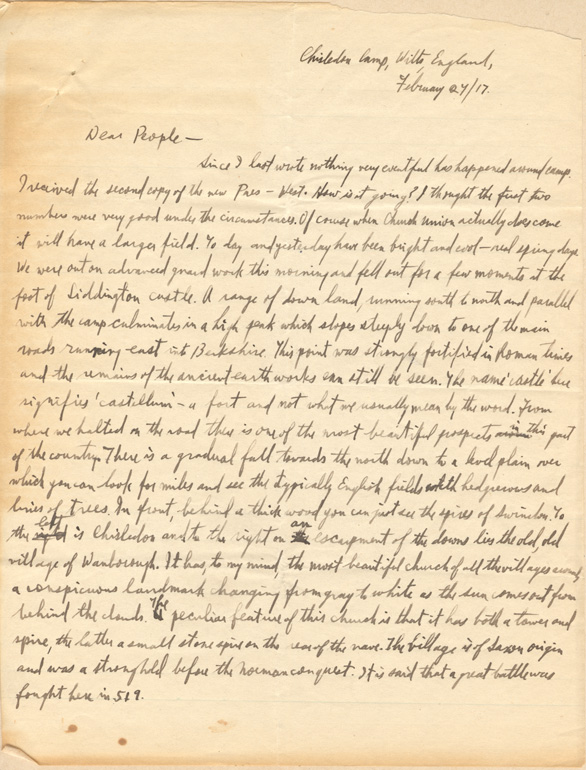 Chisledon Camp, Wilts, England,
February 27/17.
Dear People —
Since I last wrote nothing very eventful has happened around camp.
I received the second copy of the new Pres - West. How is it going? I thought the first two
numbers were very good under the circumstances. Of course when Church Union actually does come
it will have a larger field. To day and yesterday have been bright and cool - real spring days.
We were out on advanced guard work this morning and fell out for a few moments at the
foot of Liddington castle. A range of down land, running south to north and parallel
with the camp culminates in a high peak which slopes steeply down to one of the main
roads running east into Berkshire. This point was strongly fortified in Roman times
and the remains of the ancient earth works can still be seen. The name 'castle' here
signifies 'castellum' - a fort and not what we usually mean by the word. From
where we halted on the road there is one of the most beautiful prospects in this part
of the country. There is a gradual fall towards the north down to a level plain over
which you can look for miles and see the typically English fields with hedgerows and
lines of trees. In front, behind a thick wood you can just see the spires of Swindon. To
the left is Chisledon and to the right on an escarpment of the downs lies the old, old
village of Wanborough. It has, to my mind, the most beautiful church of all the villages around
a conspicuous landmark changing from gray to white as the sun comes out from
behind the clouds. The peculiar feature of this church is that it has both a tower and
spire, the latter a small stone spire on the rear of the nave. The village is of Saxon origin
and was a stronghold before the Norman conquest. It is said that a great battle was
fought here in 519.